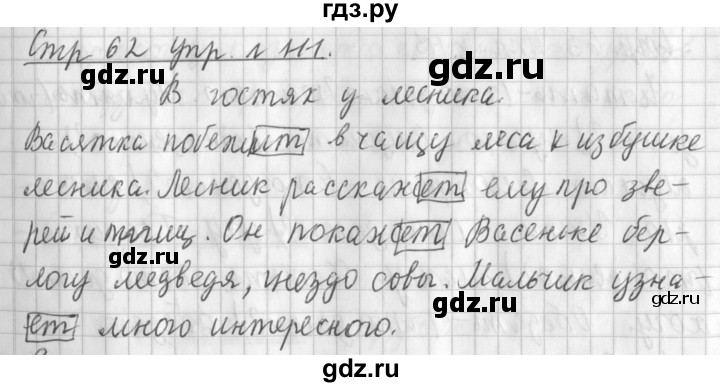 гдз.ру
Стр 62 упр. 111.
gdz.ru gdz.ru
В гостях у лесника.
Васятка побежит в чащу леса к избушке
gdz.ru
лесника. Лесник расскажет ему про зве-
рей и птиц. Он покажет Васеньке бер-
gdz.ru
логу медведя, гнездо совы. Мальчик узна-
gdz.ru
ет много интересного.
gdz.ru